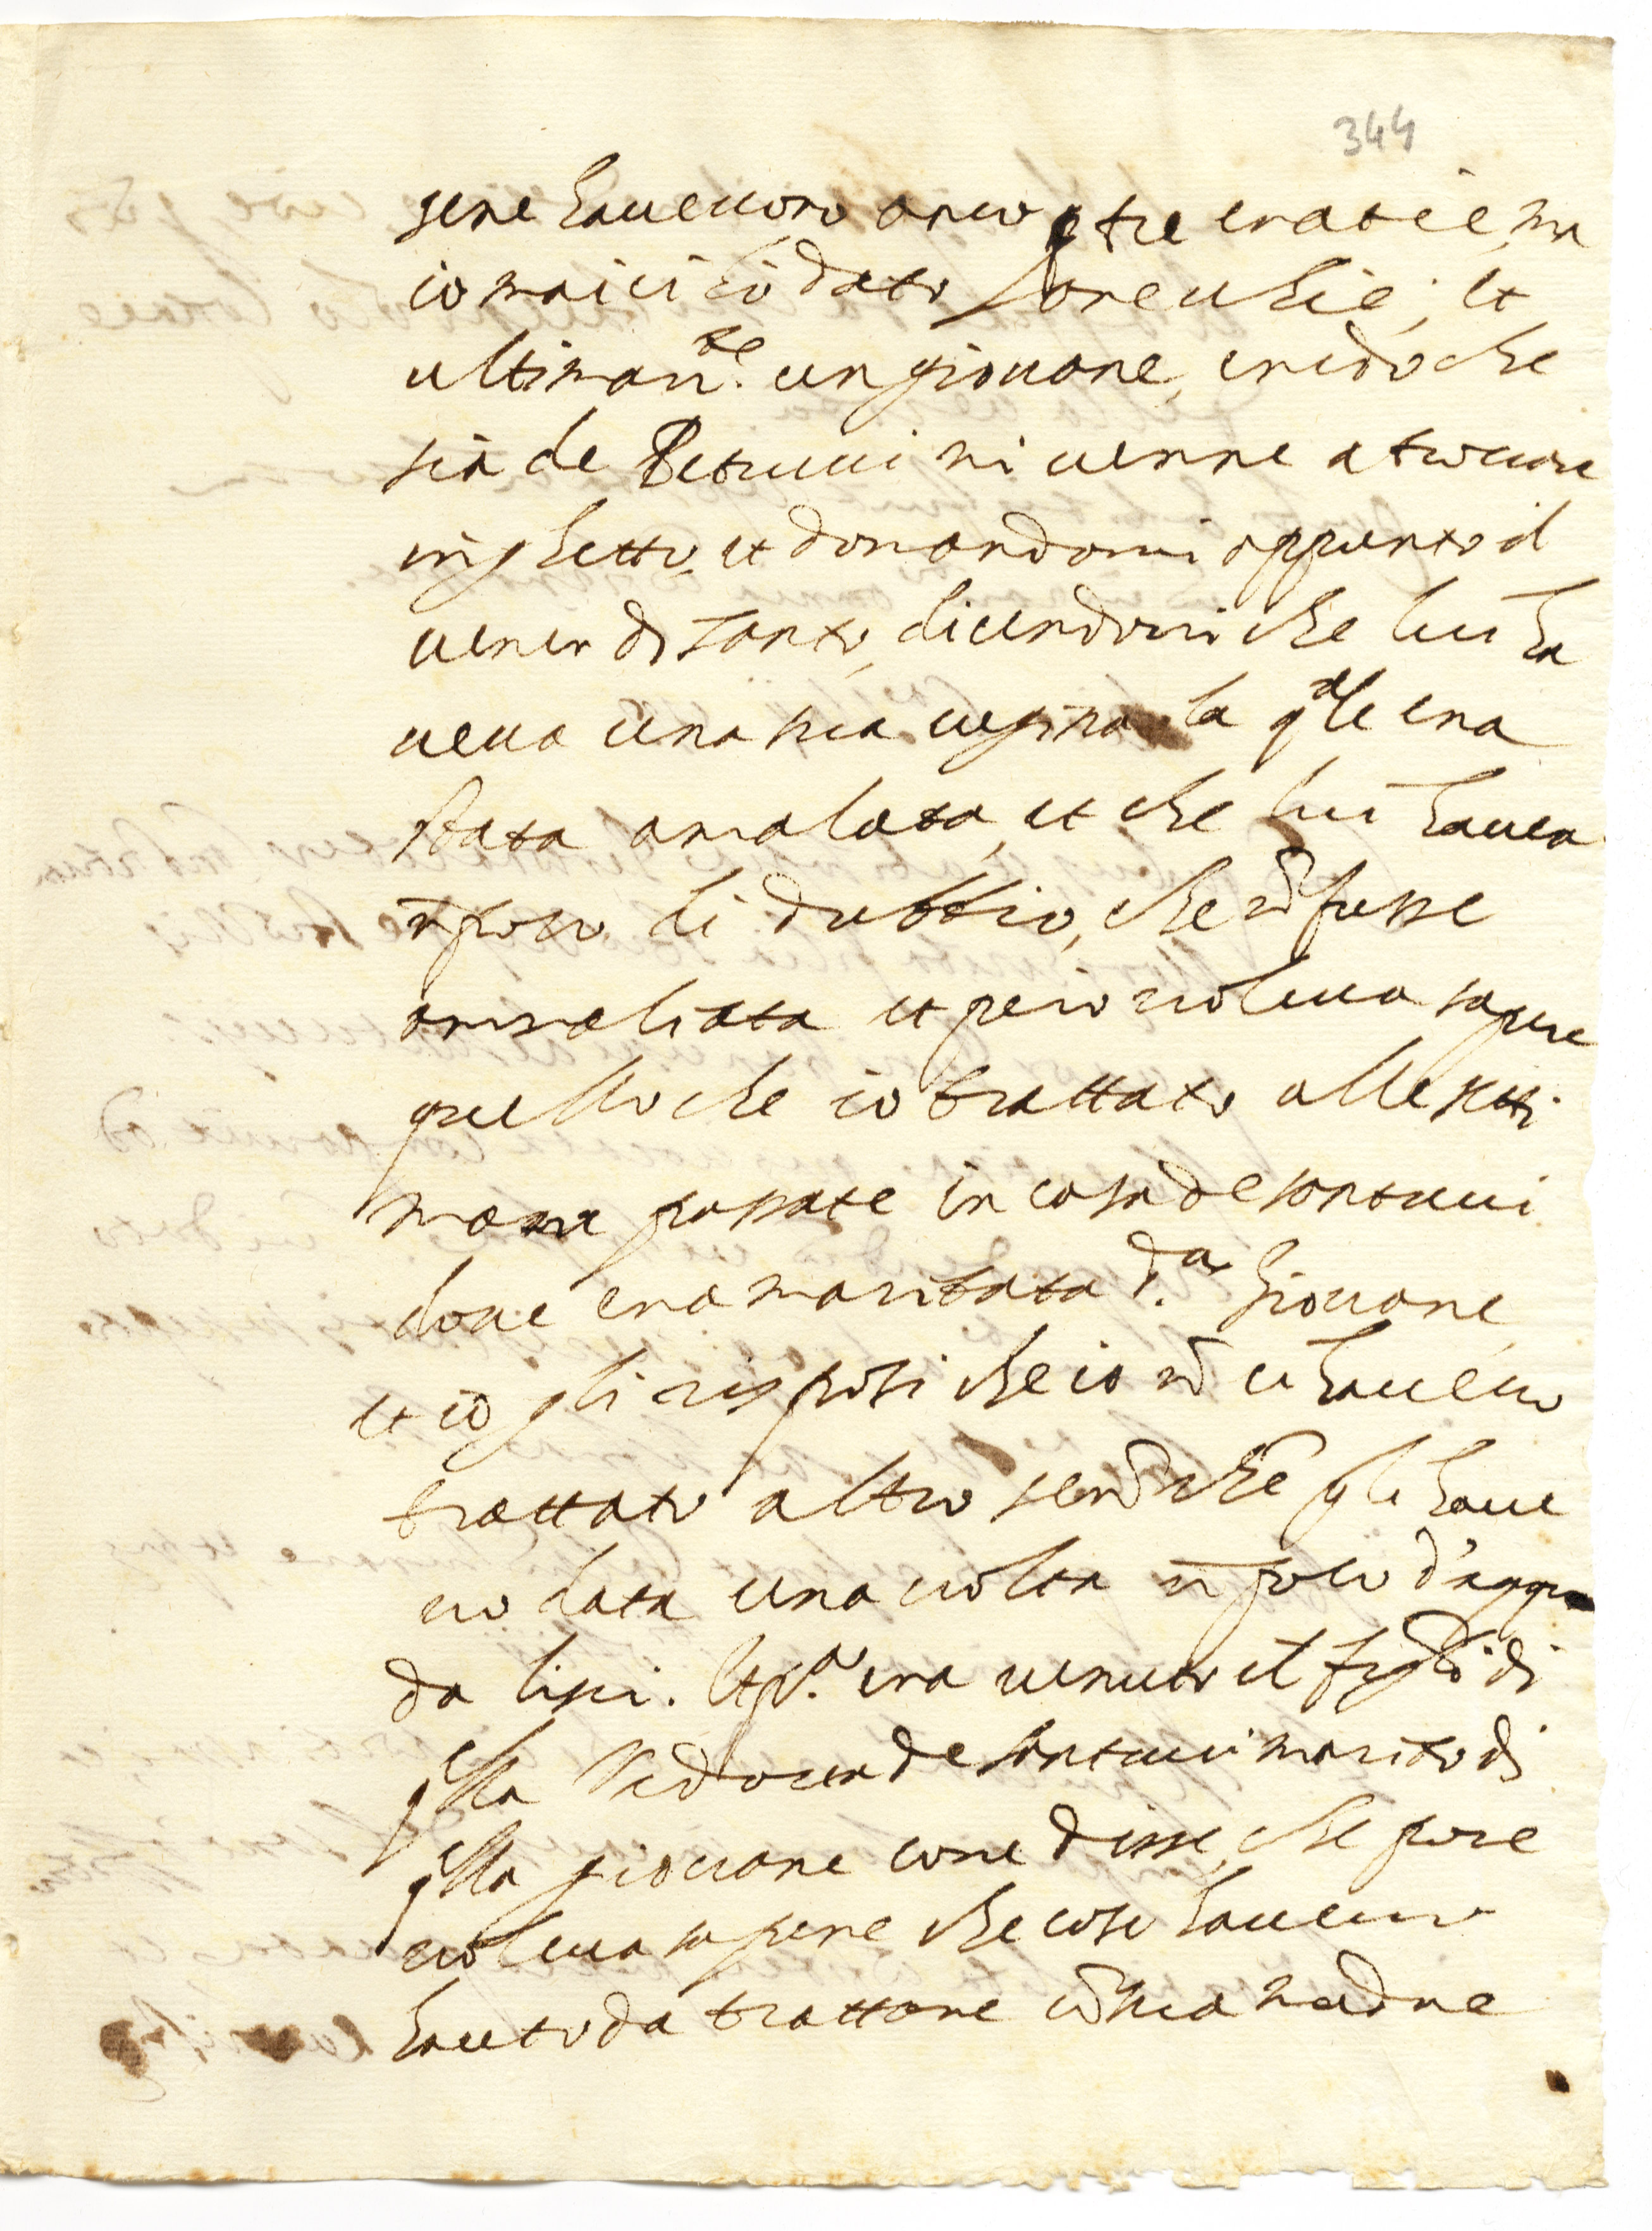 344
sene haueuono anco tre cratie, ma
io mai ci hò dato orecchie; et
ultimam.te un giouane, credo che
sia de Petrucci mi uenne a trouare
in ghetto, et domandomi appunto il
uener dì santo, dicendomi che lui ha
ueua una sua cugina la q.le era
stata amalata, et che lui haueua
ũ poco di dubbio, che nõ fusse
ammaliata et però uoleua sapere
quello che io trattato alle setti
mane passate in casa de santucci
doue era maritata d.a Giouane,
et io gli risposi che io nõ ci haueuo
trattato altro senõ che gli haue
uo data una uolta ũ poco d'acqua
da lisci. Et p.a era uenuto il figlio di
q.lla Vedoua de santucci marito di
q.lla giouane come disse, che pure
uoleua sapere che cosa haueuo
hauuto da trattare cõ sua madre